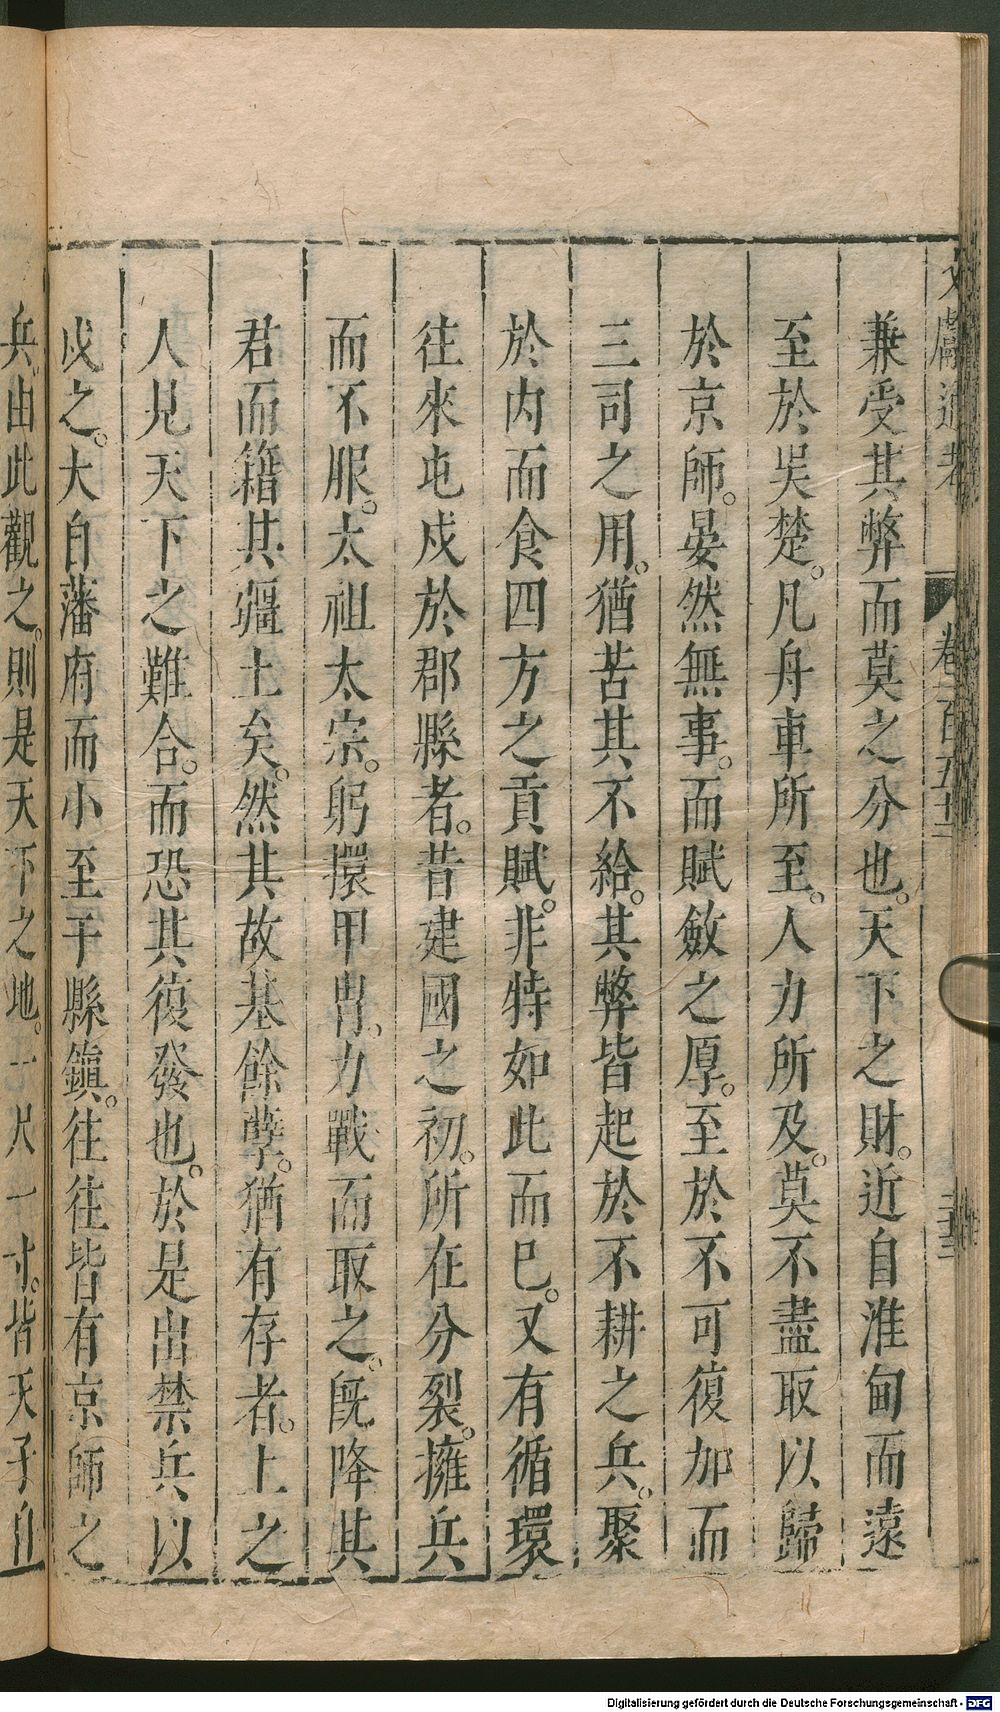 文獻通考 卷一百五十二
兼受其弊而莫之分也。天下之財。近自淮甸而遠
至於吳楚。凡舟車所至。人力所及。莫不盡取以歸
於京師。晏然無事。而賦斂之厚。至於不可復加而
三司之用。猶苦其不給。其弊皆起於不耕之兵。聚
於內而食四方之貢賦。非特如此而已。又有循環
往來屯戍於郡縣者。昔建國之初。所在分裂。擁兵
而不服。太祖太宗。躬擐甲胄。力戰而取之。旣降其
君而籍其疆土矣。然其故基餘孽。猶有存者。上之
人見天下之難合。而恐其復發也。於是出禁兵以
戍之。大自藩府而小至于縣鎭。往往皆有京師之
兵。由此觀之。則是天下之地。一尺一寸。皆天子自
Digitalisierung gefördert durch die Deutsche Forschungsgemeinschaft - DFG